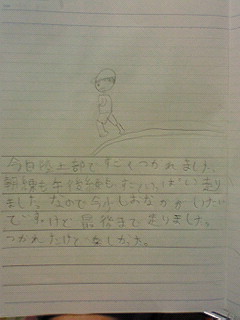 今日陸上部ですごくつかれました。
朝練も午後練もすごいいっぱい走り
ました。なので今少しおなかがいたい
ですけど最後まで走りました。
つかれたけど楽しかった。